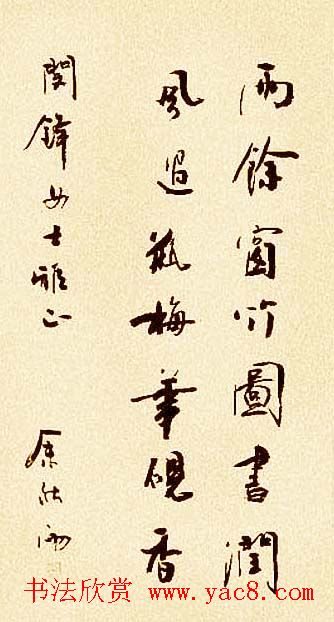 雨餘窗竹圖書潤
風過瓶梅筆硯香
閔鋒女士雅正
余秋雨
书法欣赏 www.yac8.com